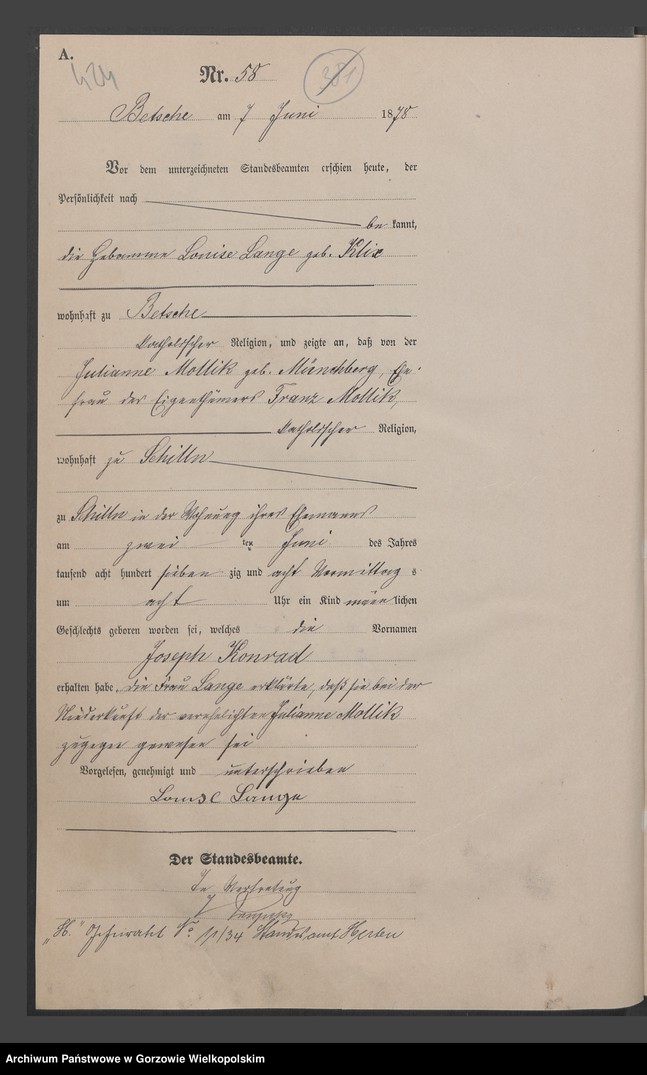 A.
424
Nr. 58
381
Betsche am 7 Juni 1878
Vor dem unterzeichneten Standesbeamten erschien heute, der
Persönlichkeit nach
be kannt,
die Hebamme Louise Lange geb. Klix
wohnhaft zu Betsche
katholischer Religion, und zeigte an, daß von der
Julianne Mollik geb. Münchberg, Ehe-
frau des Eigenthümers Franz Mollik,
katholischer Religion,
wohnhaft zu Schilln
zu Schilln in der Wohnung ihres Ehemanns
am zwei ten Juni des Jahres
tausend acht hundert sieben zig und acht Vormittag s
um acht Uhr ein Kind männlichen
Geschlechts geboren worden sei, welches die Vornamen
Joseph Konrad
erhalten habe, die Frau Lange erklärte, daß sie bei der
Niederkunft der verehelichten Julianne Mollik
zugegen gewesen sei
Vorgelesen, genehmigt und unterschrieben
Louise Lange
Der Standesbeamte.
In Vertretung
"H." Heiratet No. 11/34 Standesamt Herten
Archiwum Państwowe w Gorzowie Wielkopolskim